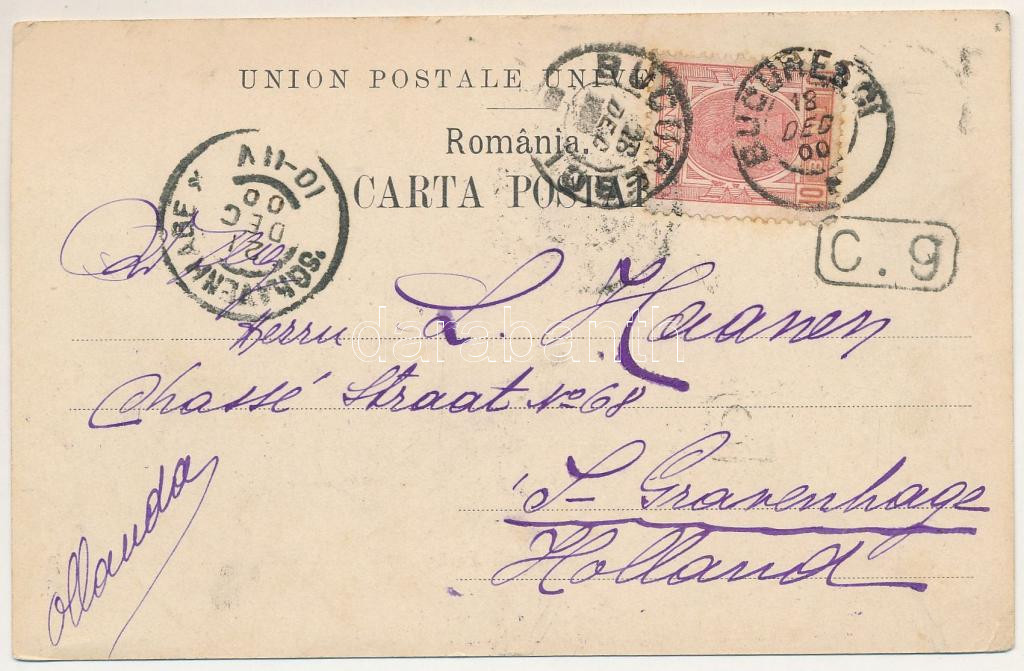 UNION POSTALE UNIV
România.
CARTA POSTAL
BUCURESCI
18
DEC
BUCURESCI
18
DEC
00
'SGRAVENHAGE
21
DEC
00
10-11V
C. g
Herrn L. Haanen
Chassé Straat No 68
'S-Gravenhage
Holland
ollanda
darabanth